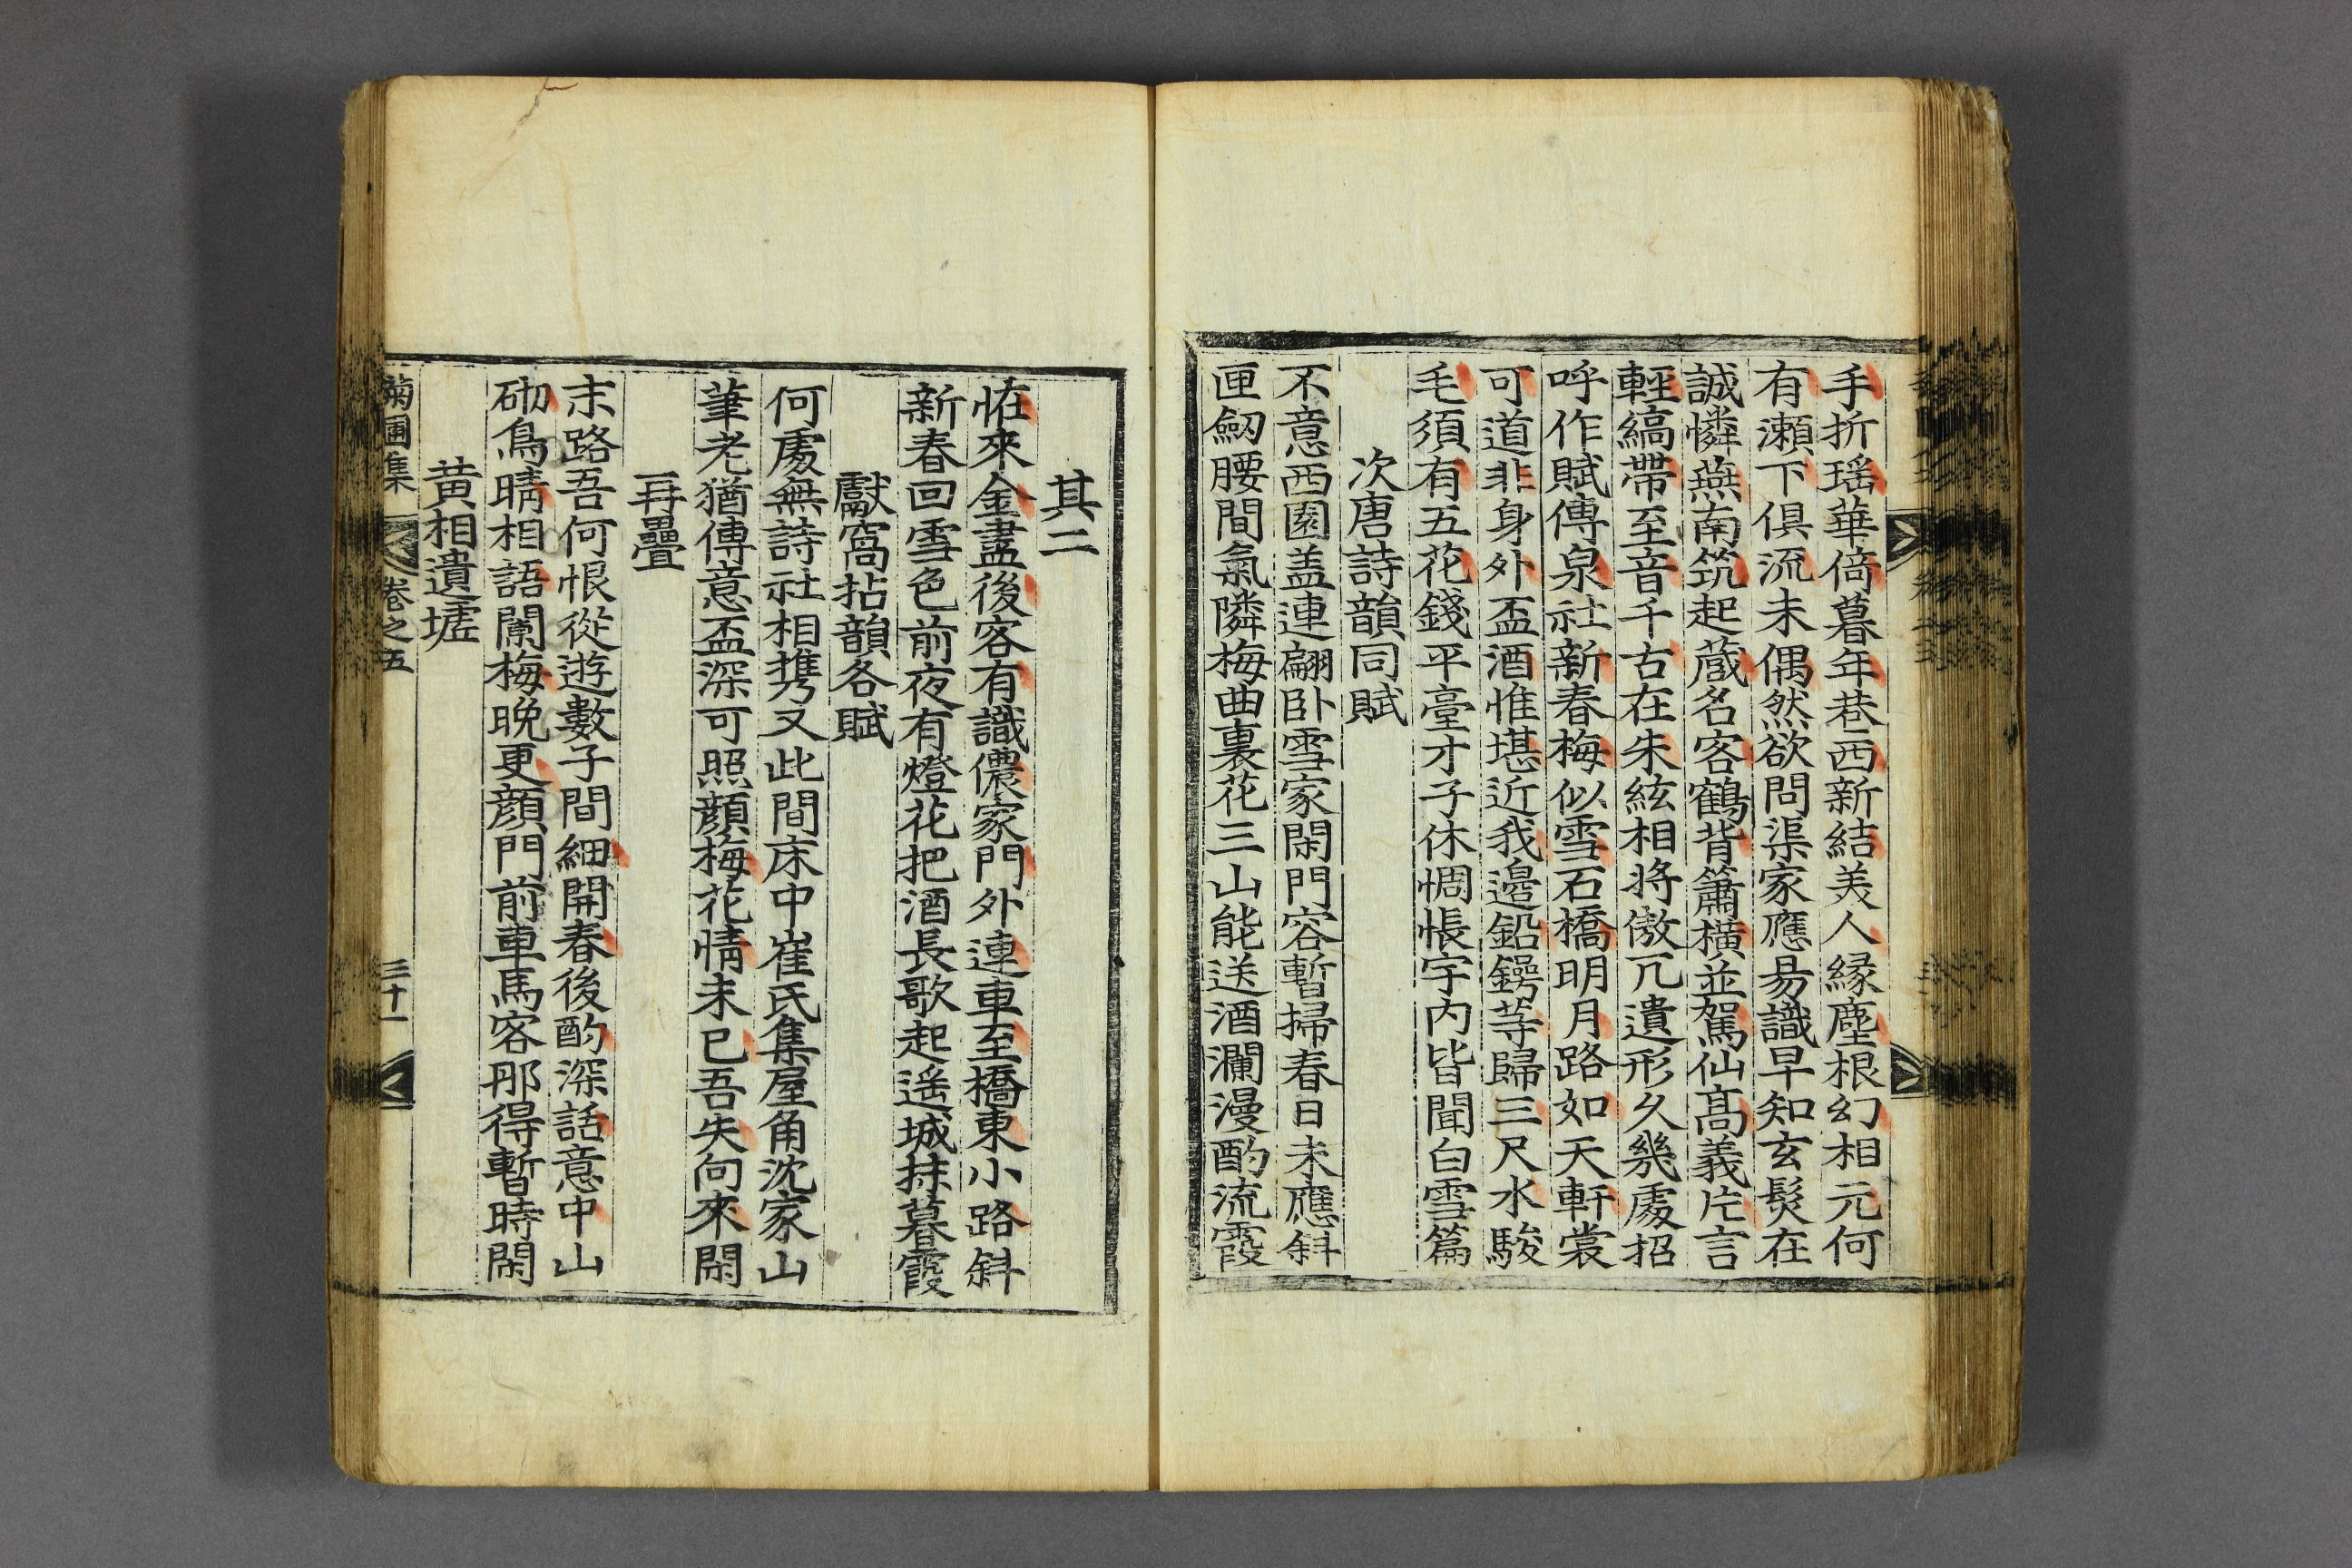 手折瑶華倚暮年巷西新結美人緣塵根幻相元何
有瀬下俱流未偶然欲問渠家應易識早知玄髮在
誠憐燕南筑起蔵名客鶴背簫橫並駕仙髙義片言
輕縞帶至音千古在朱絃相將傲兀遺形久幾處招
呼作賦傳泉社新春梅似雪石橋明月路如天軒裳
可道非身外盃酒惟堪近我邉鉛鍔等歸三尺水駿
毛須有五花錢平臺才子休惆悵宇内皆聞白雪篇
次唐詩韻同賦
不意西園盖連翩卧雪家閑門容暫掃春日未應斜
匣劒腰間氣隣梅曲裏花三山能送酒瀾漫酌流霞
其二
恠來金盡後客有識儂家門外連車至橋東小路斜
新春回雪色前夜有燈花把酒長歌起遥城抹暮霞
獻窩拈韻各賦
何處無詩社相携又此間床中崔氏集屋角沈家山
筆老猶傳意盃深可照顔梅花情未已吾失向來閑
再疊
末路吾何恨從遊數子間細開春後酌深話意中山
砌鳥晴相語闌梅晩更顔門前車馬客那得暫時閑
黄相遺墟
菊圃集 卷之五 三十一